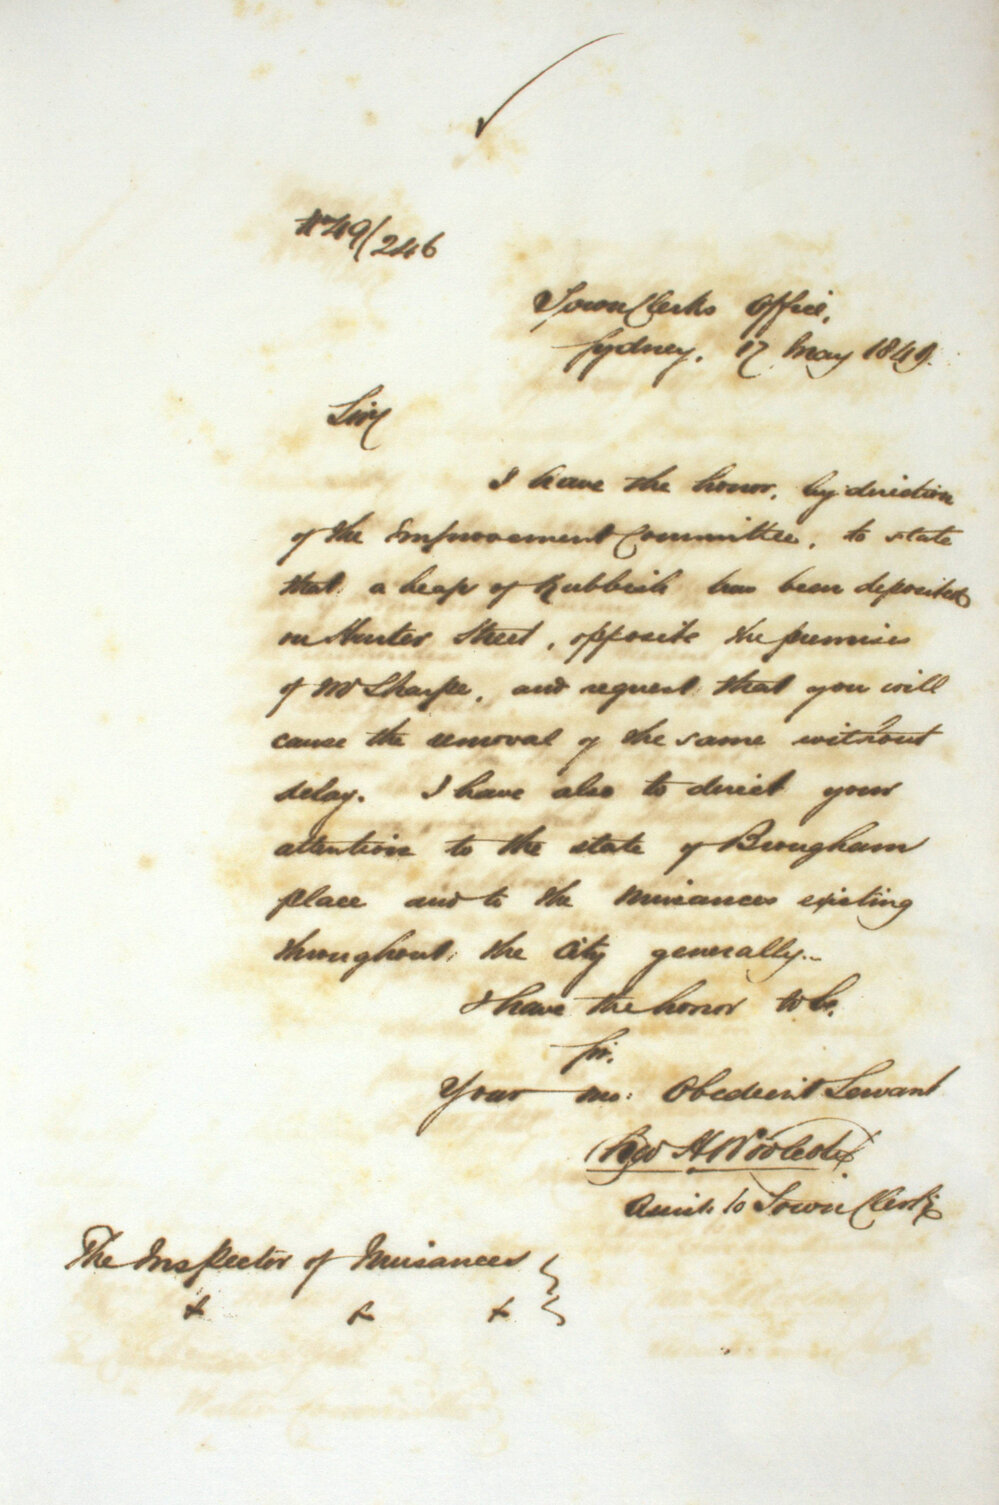 49/246
Town Clerks Office,
Sydney, 17 May 1849.
Sir
I have the honor, by direction
of the Improvement Committee, to state
that a heap of Rubbish has been deposited
on Hunter Street, opposite the premises
of Mr Sharpe, and request that you will
cause the removal of the same without
delay. I have also to direct your
attention to the state of Brougham
place and to the nuisances existing
throughout the City generally..
I have the honor to be,
Sir,
Your mo: Obedient Servant
H Woolcott
Assist. to Town Clerk
The Inspector of Nuisances
x x x